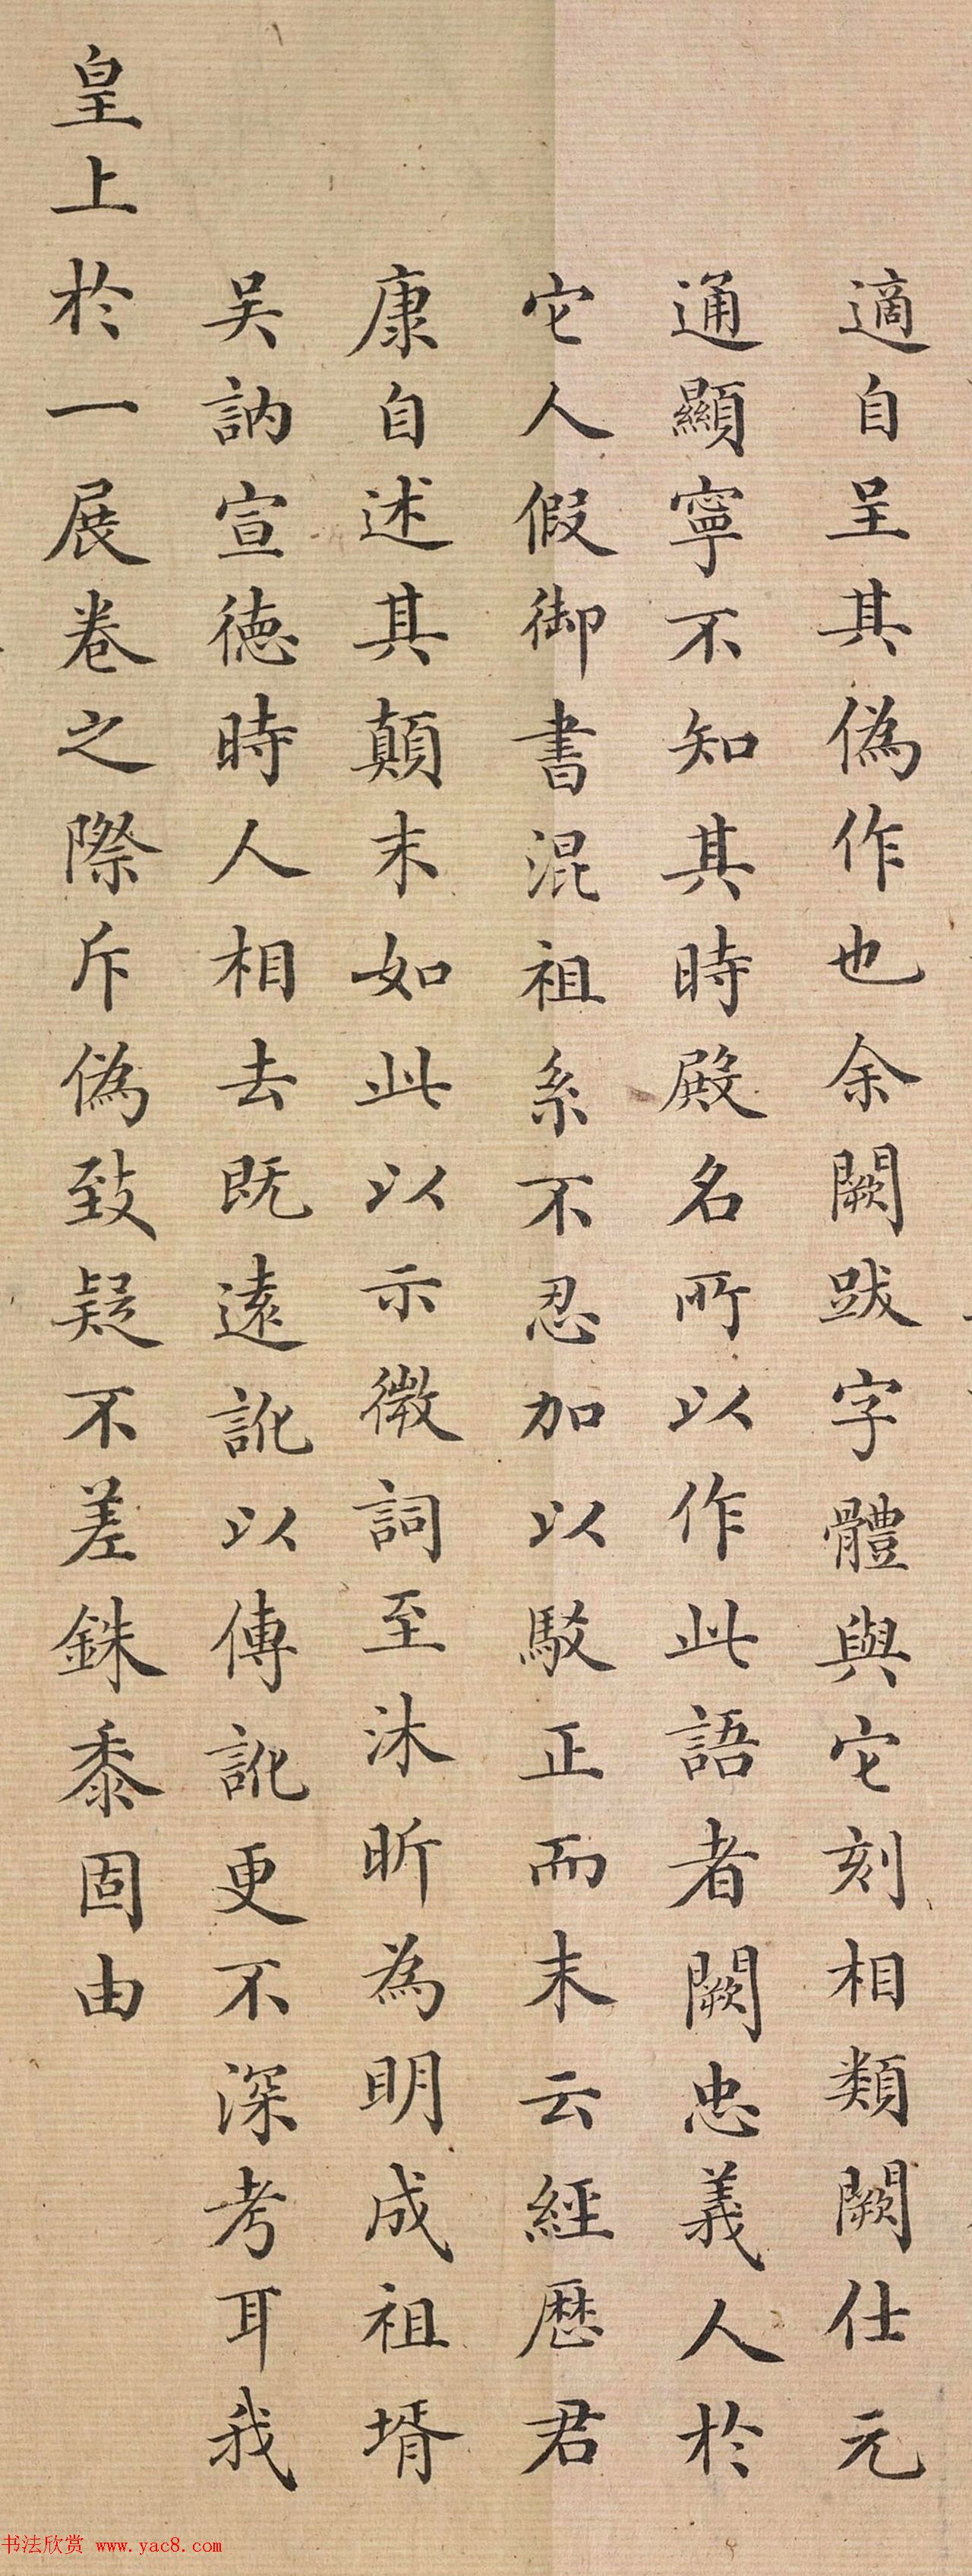 適自呈其偽作也余闕跋字體與它刻相類闕仕元
通顯寧不知其時殿名所以作此語者闕忠義人於
它人假御書混祖系不忍加以駁正而末云經歷君
康自述其顛末如此以示微詞至沐昕為明成祖壻
吴訥宣徳時人相去既遠訛以傳訛更不深考耳我
皇上於一展卷之際斥偽致疑不差銖黍固由
书法欣赏 www.yac8.com